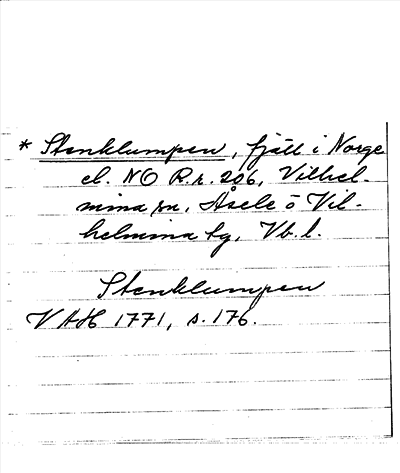 * Stenklumpen, fjäll i Norge
el. NO R.r. 206, Vilhel-
mina sn, Åsele o Vil-
helmina tg, Vb. l.
Stenklumpen
VAH 1771, s. 176.